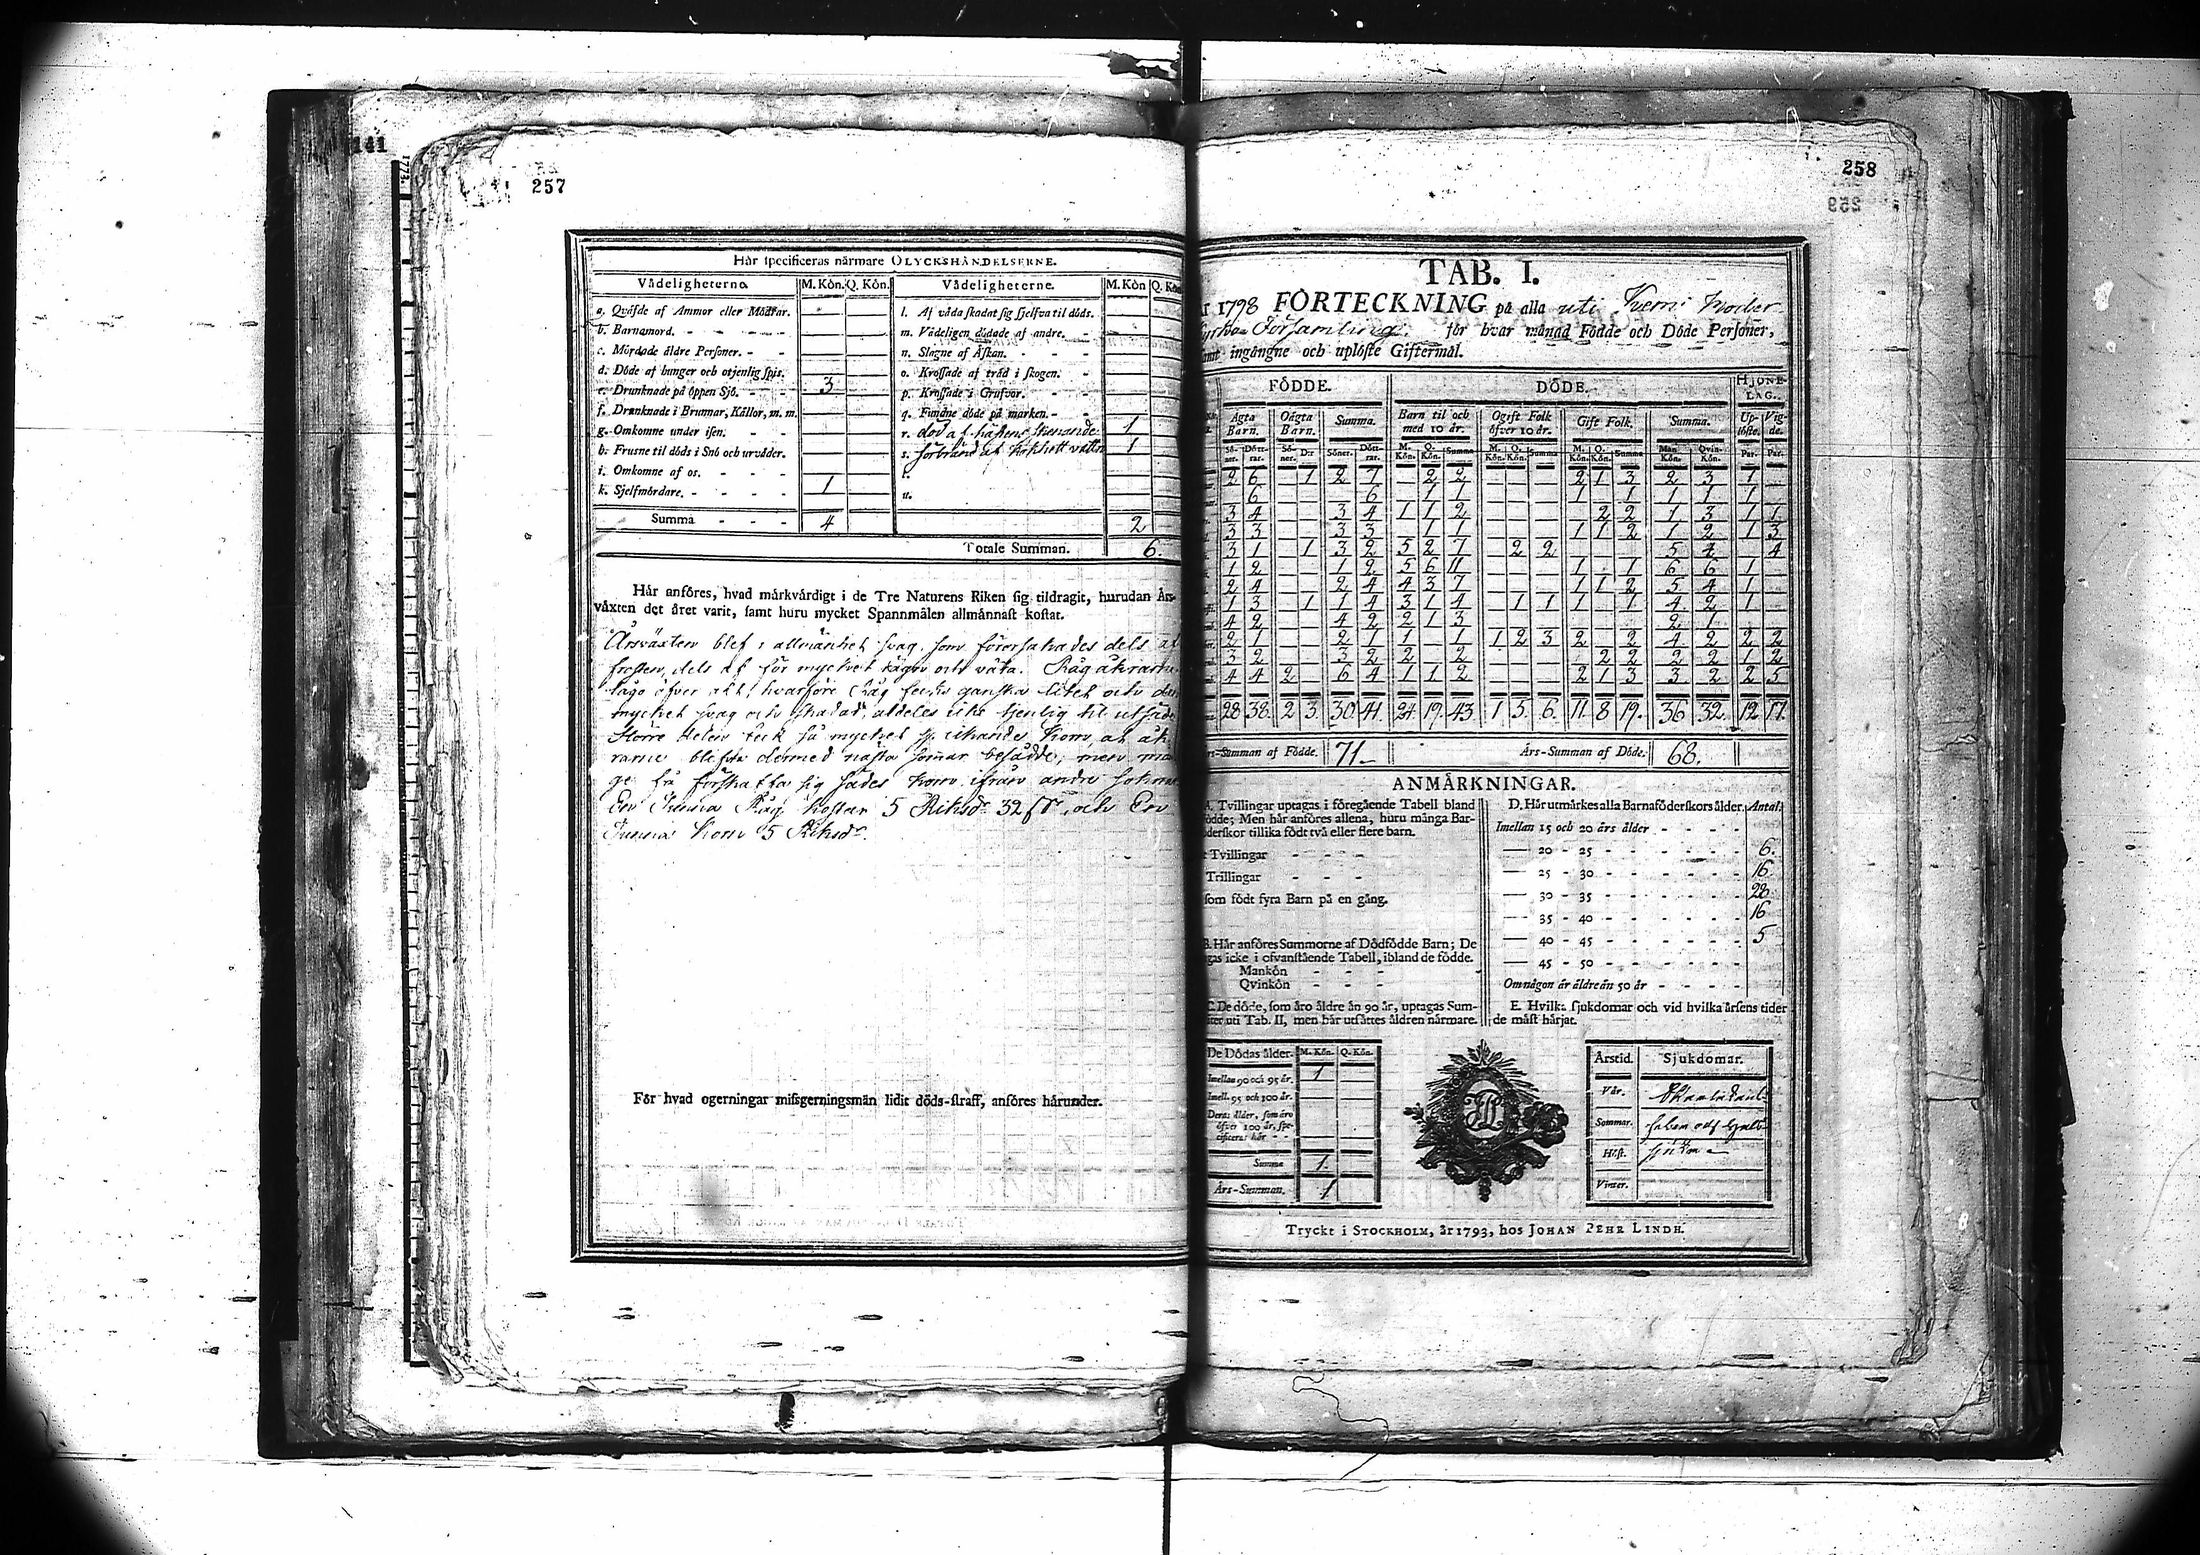 141
257
Här specificeras närmare OLYCKSHÄNDELSERNE.
Vådeligheterna. M. Kön. Q. Kön. Vådeligheterne. M. Kön Q. Kön
a. Qväfde af Ammor eller Mödrar.
b. Barnamord.
c. Mördade äldre Personer.
d. Döde af hunger och otjenlig spis.
e. Drunknade på öppen Sjö. 3
f. Drunknade i Brunnar, Källor, m. m.
g. Omkomne under isen.
h. Frusne til döds i Snö och urväder.
i. Omkomne af os.
k. Sjelfmördare. 1
Summa 4
l. Af våda skadat sig sjelfva til döds.
m. Vådeligen dödade af andre.
n. Slagne af Åskan.
o. Krossade af träd i skogen.
p. Krossade i Grufvor.
q. Fundne döde på marken.
r. död af hästens skenande 1
s. förbränd af kokhett vatten 1
t.
u.
2
Totale Summan. 6.
Här anföres, hvad märkvärdigt i de Tre Naturens Riken sig tildragit, hurudan Års-
växten det året varit, samt huru mycket Spannmålen allmännast kostat.
Årsväxten blef i allmänhet svag, som förorsakades dels af
frosten, dels af för mycket rägn och väta. Råg åkrarna
hvarföre Råg ganska litet och den
mycket svag och skadad, aldeles icke tjenlig til utsäde
Större delen fick så mycket Korn, at åk-
rarne dermed nästa sommar besådde, men
få förskaffa sig sädes Korn ifrån andra
En Tunna Råg kostar 5 Riksdr 32 sk, och En
Tunna Korn 5 Riksdr.
För hvad ogerningar missgerningsmän lidit döds-straff, anföres härunder.
258
TAB. I.
År 1798 FÖRTECKNING på alla uti Kumo Moder
Kyrko Församling för hvar månad Födde och Döde Personer,
samt ingångne och uplöste Giftermål.
FÖDDE. DÖDE. HJONE-LAG.
Ägta Barn. Oägta Barn. Summa. Barn til och med 10 år. Ogift Folk öfver 10 år. Gift Folk. Summa. Up-löste. Vig-de.
Sö-ner. Dött-rar. Sö-ner. D:r Söner. Dött-rar. M. Kön. Q. Kön. Summa M. Kön. Q. Kön. Summa M. Kön. Q. Kön. Summa Man Kön. Qvin-Kön. Par. Par.
2 6 — 1 2 7 — 2 2 — — — 2 1 3 2 3 1 —
— 6 — — — 6 — 1 1 — — — 1 — 1 1 1 1 —
3 4 — — 3 4 1 1 2 — — — — 2 2 1 3 1 1
3 3 — — 3 3 — 1 1 — — — 1 1 2 1 2 1 3
3 1 — 1 3 2 5 2 7 — 2 2 — — — 5 4 — 4
1 2 — — 1 2 5 6 11 — — — 1 — 1 6 6 1 —
2 4 — — 2 4 4 3 7 — — — 1 1 2 5 4 1 —
1 3 — 1 1 4 3 1 4 — 1 1 1 — 1 4 2 1 —
4 2 — — 4 2 2 1 3 — — — — — — 2 1 — —
2 1 — — 2 1 1 — 1 1 2 3 2 — 2 4 2 2 2
3 2 — — 3 2 2 — 2 — — — — 2 2 2 2 1 2
4 4 2 — 6 4 1 1 2 — — — 2 1 3 3 2 2 5
28 38. 2 3. 30 41. 24. 19. 43 1 5. 6. 11. 8 19. 36 32 12. 17.
Års-Summan af Födde. 71. Års-Summan af Döde. 68.
ANMÄRKNINGAR.
A. Tvillingar uptagas i föregående Tabell bland
födde; Men här anföres allena, huru många Bar-
nföderskor tillika födt två eller flere barn.
Tvillingar
Trillingar
som födt fyra Barn på en gång.
B. Här anföres Summorne af Dödfödde Barn; De
tagas icke i ofvanstående Tabell, ibland de födde.
Mankön
Qvinkön
C. De döde, som äro äldre än 90 år, uptagas Sum-
uti Tab. II, men här utsättes åldren närmare.
D. Här utmärkes alla Barnaföderskors ålder. Antal.
Imellan 15 och 20 års ålder
20 - 25 6.
25 - 30 16
30 - 35 28
35 - 40 16
40 - 45 5
45 - 50
Om någon är äldre än 50 år
E. Hvilka sjukdomar och vid hvilka årsens tider
de mäst härjat.
De Dödas ålder. M. Kön. Q. Kön.
Imellan 90 och 95 år. 1
Imell. 95 och 100 år.
Deras ålder, som äro
öfver 100 år, spe-
cificeras här
Summa 1.
Års-Summan. 1
Årstid. Sjukdomar.
Vår.
Sommar.
Höst.
Vinter.
Tryckt i STOCKHOLM, år 1793, hos JOHAN PEHR LINDH.